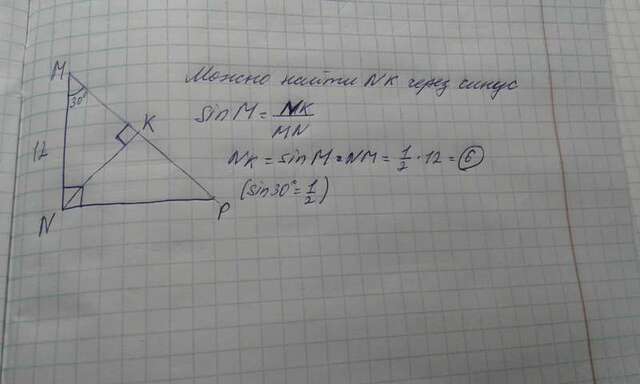 M
30°
K
12
N
P
Можно найти NK через синус
sin M = NK/MN
NK = sin M · NM = 1/2 · 12 = 6
(sin 30° = 1/2)